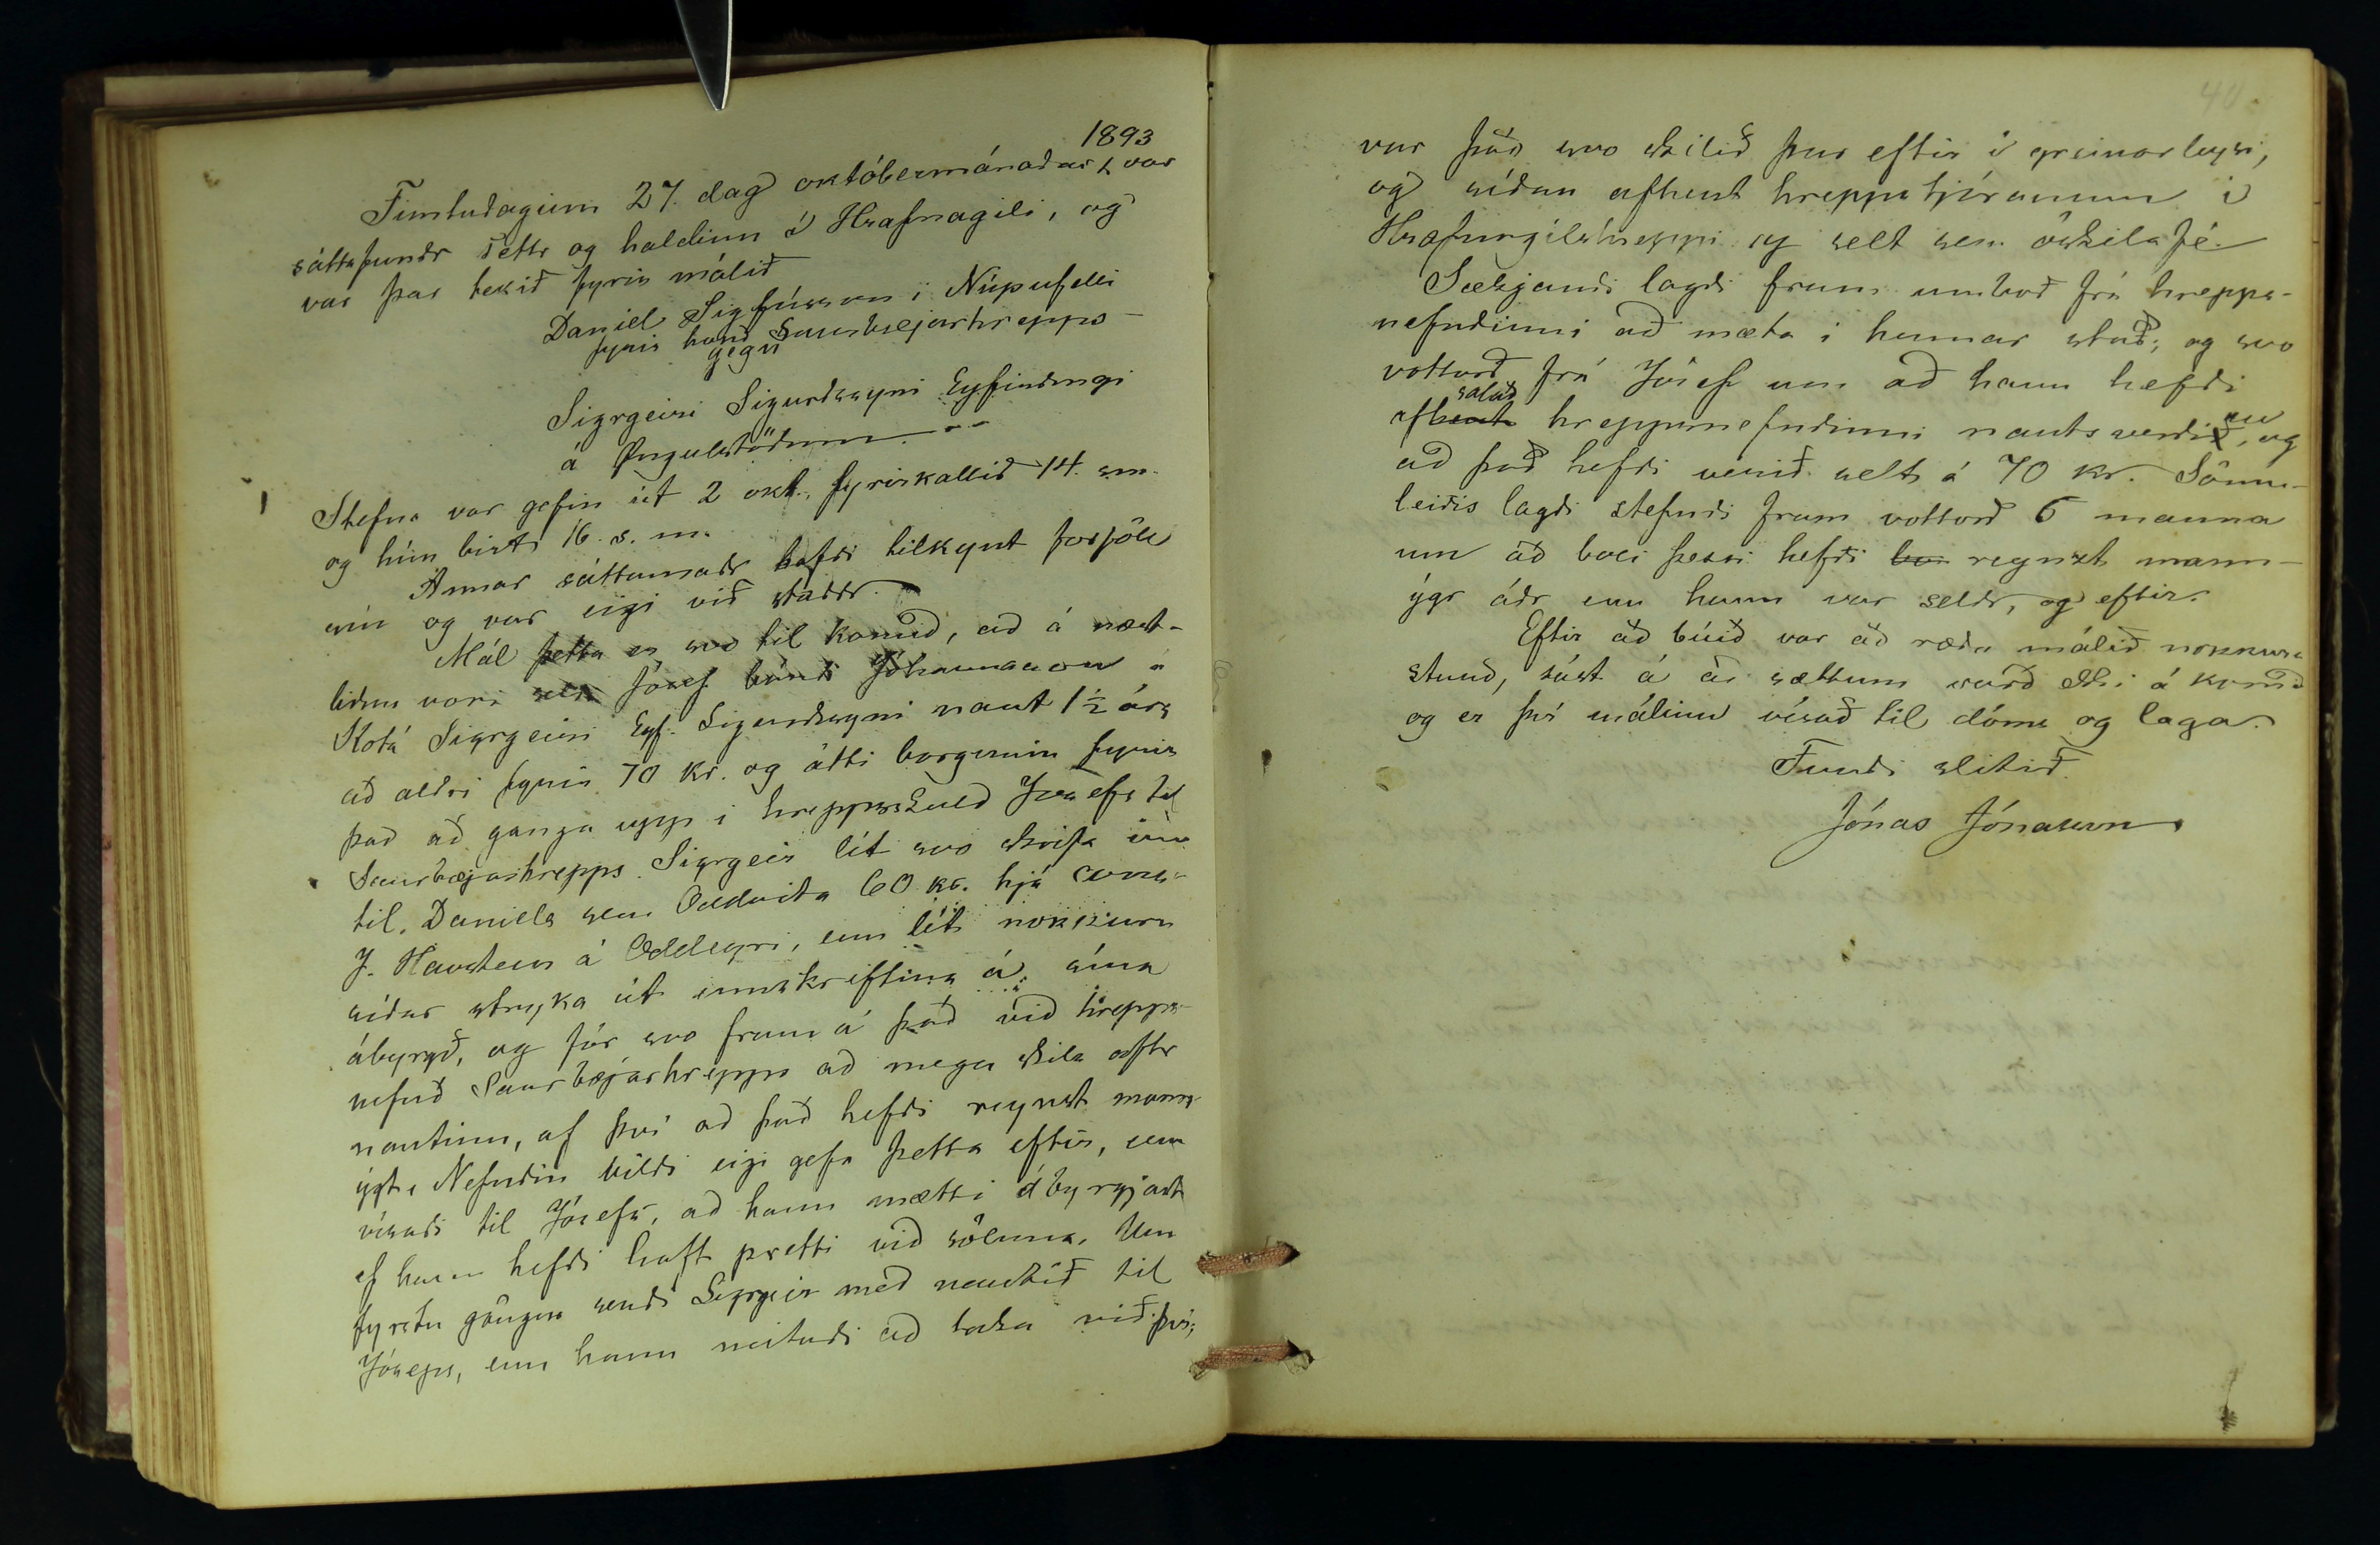 1893
Fimtudaginn 27. dag októbermánaðar var
sáttafundr settr og haldinn á Hrafnagili, og
var þar tekið fyrir málið
Daniel Sigfússon í Núpufelli
fyrir hönd Saurbæjarhrepps
gegn
Sigrgeiri Sigurdssyni Eyfirdingi
á Öngulstöðum
Stefna var gefin út 2 okt., fyrirkallið 14. s.m.
og hún birt 16. s. m.
Annar sáttamaðr hafði tilkynt forföll
sín og var eigi við staddr.
Mál þetta er svo til komið, að á næst-
liðnu vori seldi Jósef bóndi Jóhannsson á
Kotá Sigrgeiri Eyf. Sigurdssyni naut 1½ árs
að aldri fyrir 70 kr. og átti borgunin fyrir
það að ganga upp í hreppsskuld Jósefs til
Saurbæjarhrepps. Sigrgeir lét svo skrifa inn
til Daniels sem Oddvita 60 kr. hjá cons.
J. Havsteen á Oddeyri, enn lét nokkuru
síðar stryka út innskriftina á sína
ábyrgð, og fór svo fram á það við hrepps-
nefnd Saurbæjarhrepps að mega skila aftr
nautinu, af því að það hefði reynst mann-
ýgt. Nefndin vildi eigi gefa þetta eftir, enn
vísaði til Jósefs, að hann mætti ábyrgjast
ef hann hefði haft pretti við söluna. Um
fyrstu göngur sendi Sigrgeir með nautið til
Jóseps, enn hann neitaði að taka við því;
40
var það svo skilið þar eftir í greinarleysi,
og síðan afhent hreppstjóranum í
Hrafnagilshreppi og selt sem óskilafé.
Sækjandi lagði fram umboð frá hrepps-
nefndinni að mæta í hennar stað; og svo
vottorð frá Jósef um að hann hefði
salað
afhent hreppsnefndinni nautsverðið, og
að það hefði verið selt á 70 kr. Sömu-
leiðis lagði stefndi fram vottorð 6 manna
um að boli þessi hefði bo- reynst mann-
ýgr áðr enn hann var seldr, og eftir.
Eftir að búið var að ræða málið nokkura
stund, sást á að sættum varð ekki á komið
og er því málinu vísað til dóms og laga.
Fundi slitið.
Jónas Jónasson